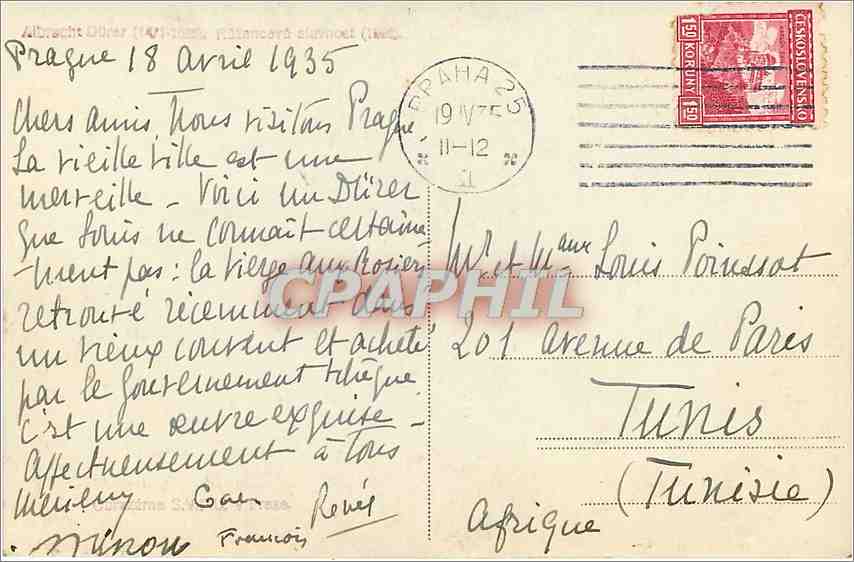 Albrecht Dürer Růžencová slavnost
Prague 18 Avril 1935
Chers amis, Nous visitons Prague
La vieille ville est une
merveille - Voici un Dürer
que Louis ne connait certaine
-ment pas: la Vierge aux Rosiers
retrouvé récemment dans
un vieux couvent et acheté
par le gouvernement tchèque
c'est une œuvre exquise -
Affectueusement à Tous
René
François
PRAHA 25
19 IV 35
11-12
ČESKOSLOVENSKO
1·50 KORUNY 1·50
Mr et Mame Louis Poinssot
201 Avenue de Paris
Tunis
(Tunisie)
Afrique
CPAPHIL